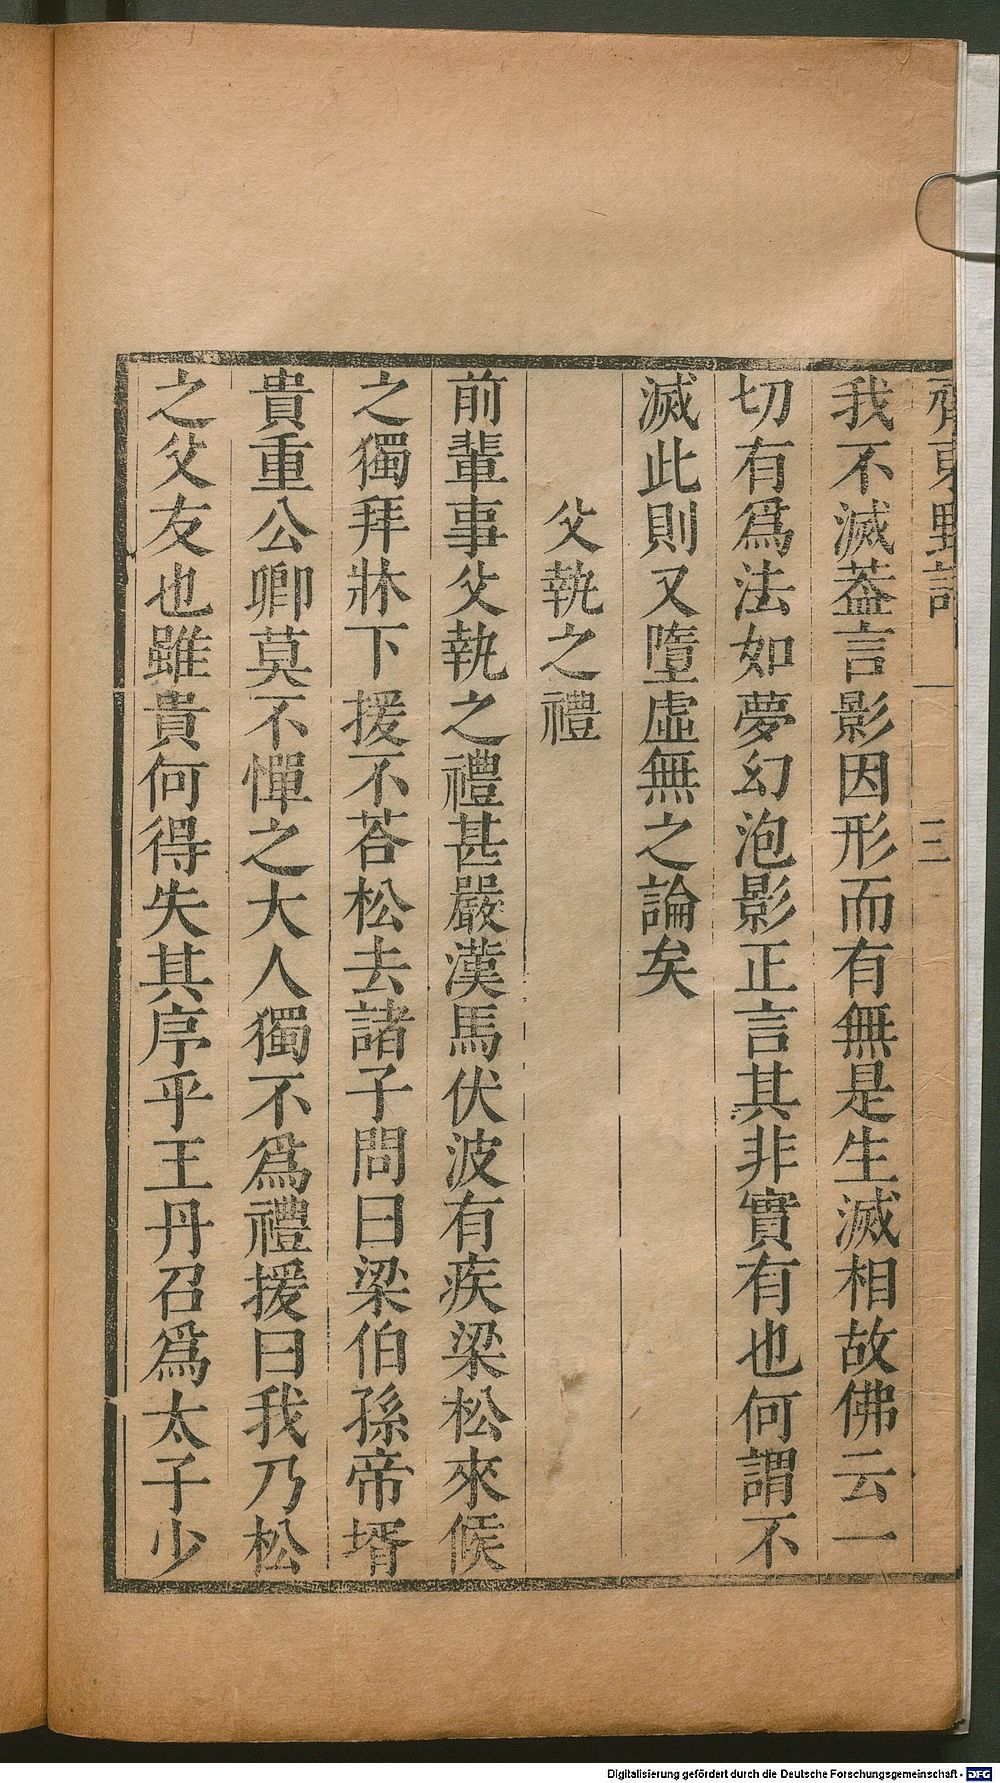 齊東野語 三
我不滅葢言影因形而有無是生滅相故佛云一
切有爲法如夢幻泡影正言其非實有也何謂不
滅此則又墮虛無之論矣
父執之禮
前輩事父執之禮甚嚴漢馬伏波有疾梁松來候
之獨拜牀下援不荅松去諸子問曰梁伯孫帝壻
貴重公卿莫不憚之大人獨不爲禮援曰我乃松
之父友也雖貴何得失其序乎王丹召爲太子少
Digitalisierung gefördert durch die Deutsche Forschungsgemeinschaft - DFG